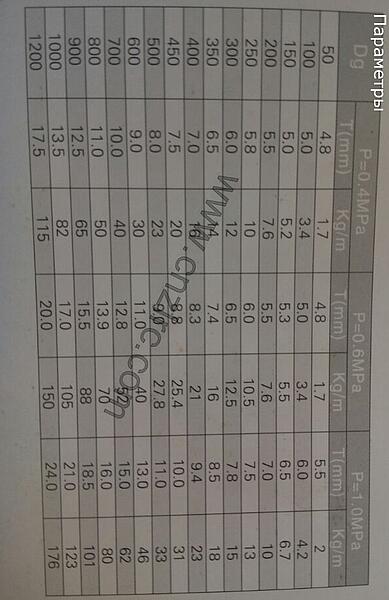 Параметры
Dg P=0.4MPa P=0.6MPa P=1.0MPa
T(mm) Kg/m T(mm) Kg/m T(mm) Kg/m
50 4.8 1.7 4.8 1.7 5.5 2
100 5.0 3.4 5.0 3.4 6.0 4.2
150 5.0 5.2 5.3 5.5 6.5 6.7
200 5.5 7.6 5.5 7.6 7.0 10
250 5.8 10 6.0 10.5 7.5 13
300 6.0 12 6.5 12.5 7.8 15
350 6.5 14 7.4 16 8.5 18
400 7.0 16 8.3 21 9.4 23
450 7.5 20 8.8 25.4 10.0 31
500 8.0 23 9.0 27.8 11.0 33
600 9.0 30 11.0 40 13.0 46
700 10.0 40 12.8 52 15.0 62
800 11.0 50 13.9 70 16.0 80
900 12.5 65 15.5 88 18.5 101
1000 13.5 82 17.0 105 21.0 123
1200 17.5 115 20.0 150 24.0 176